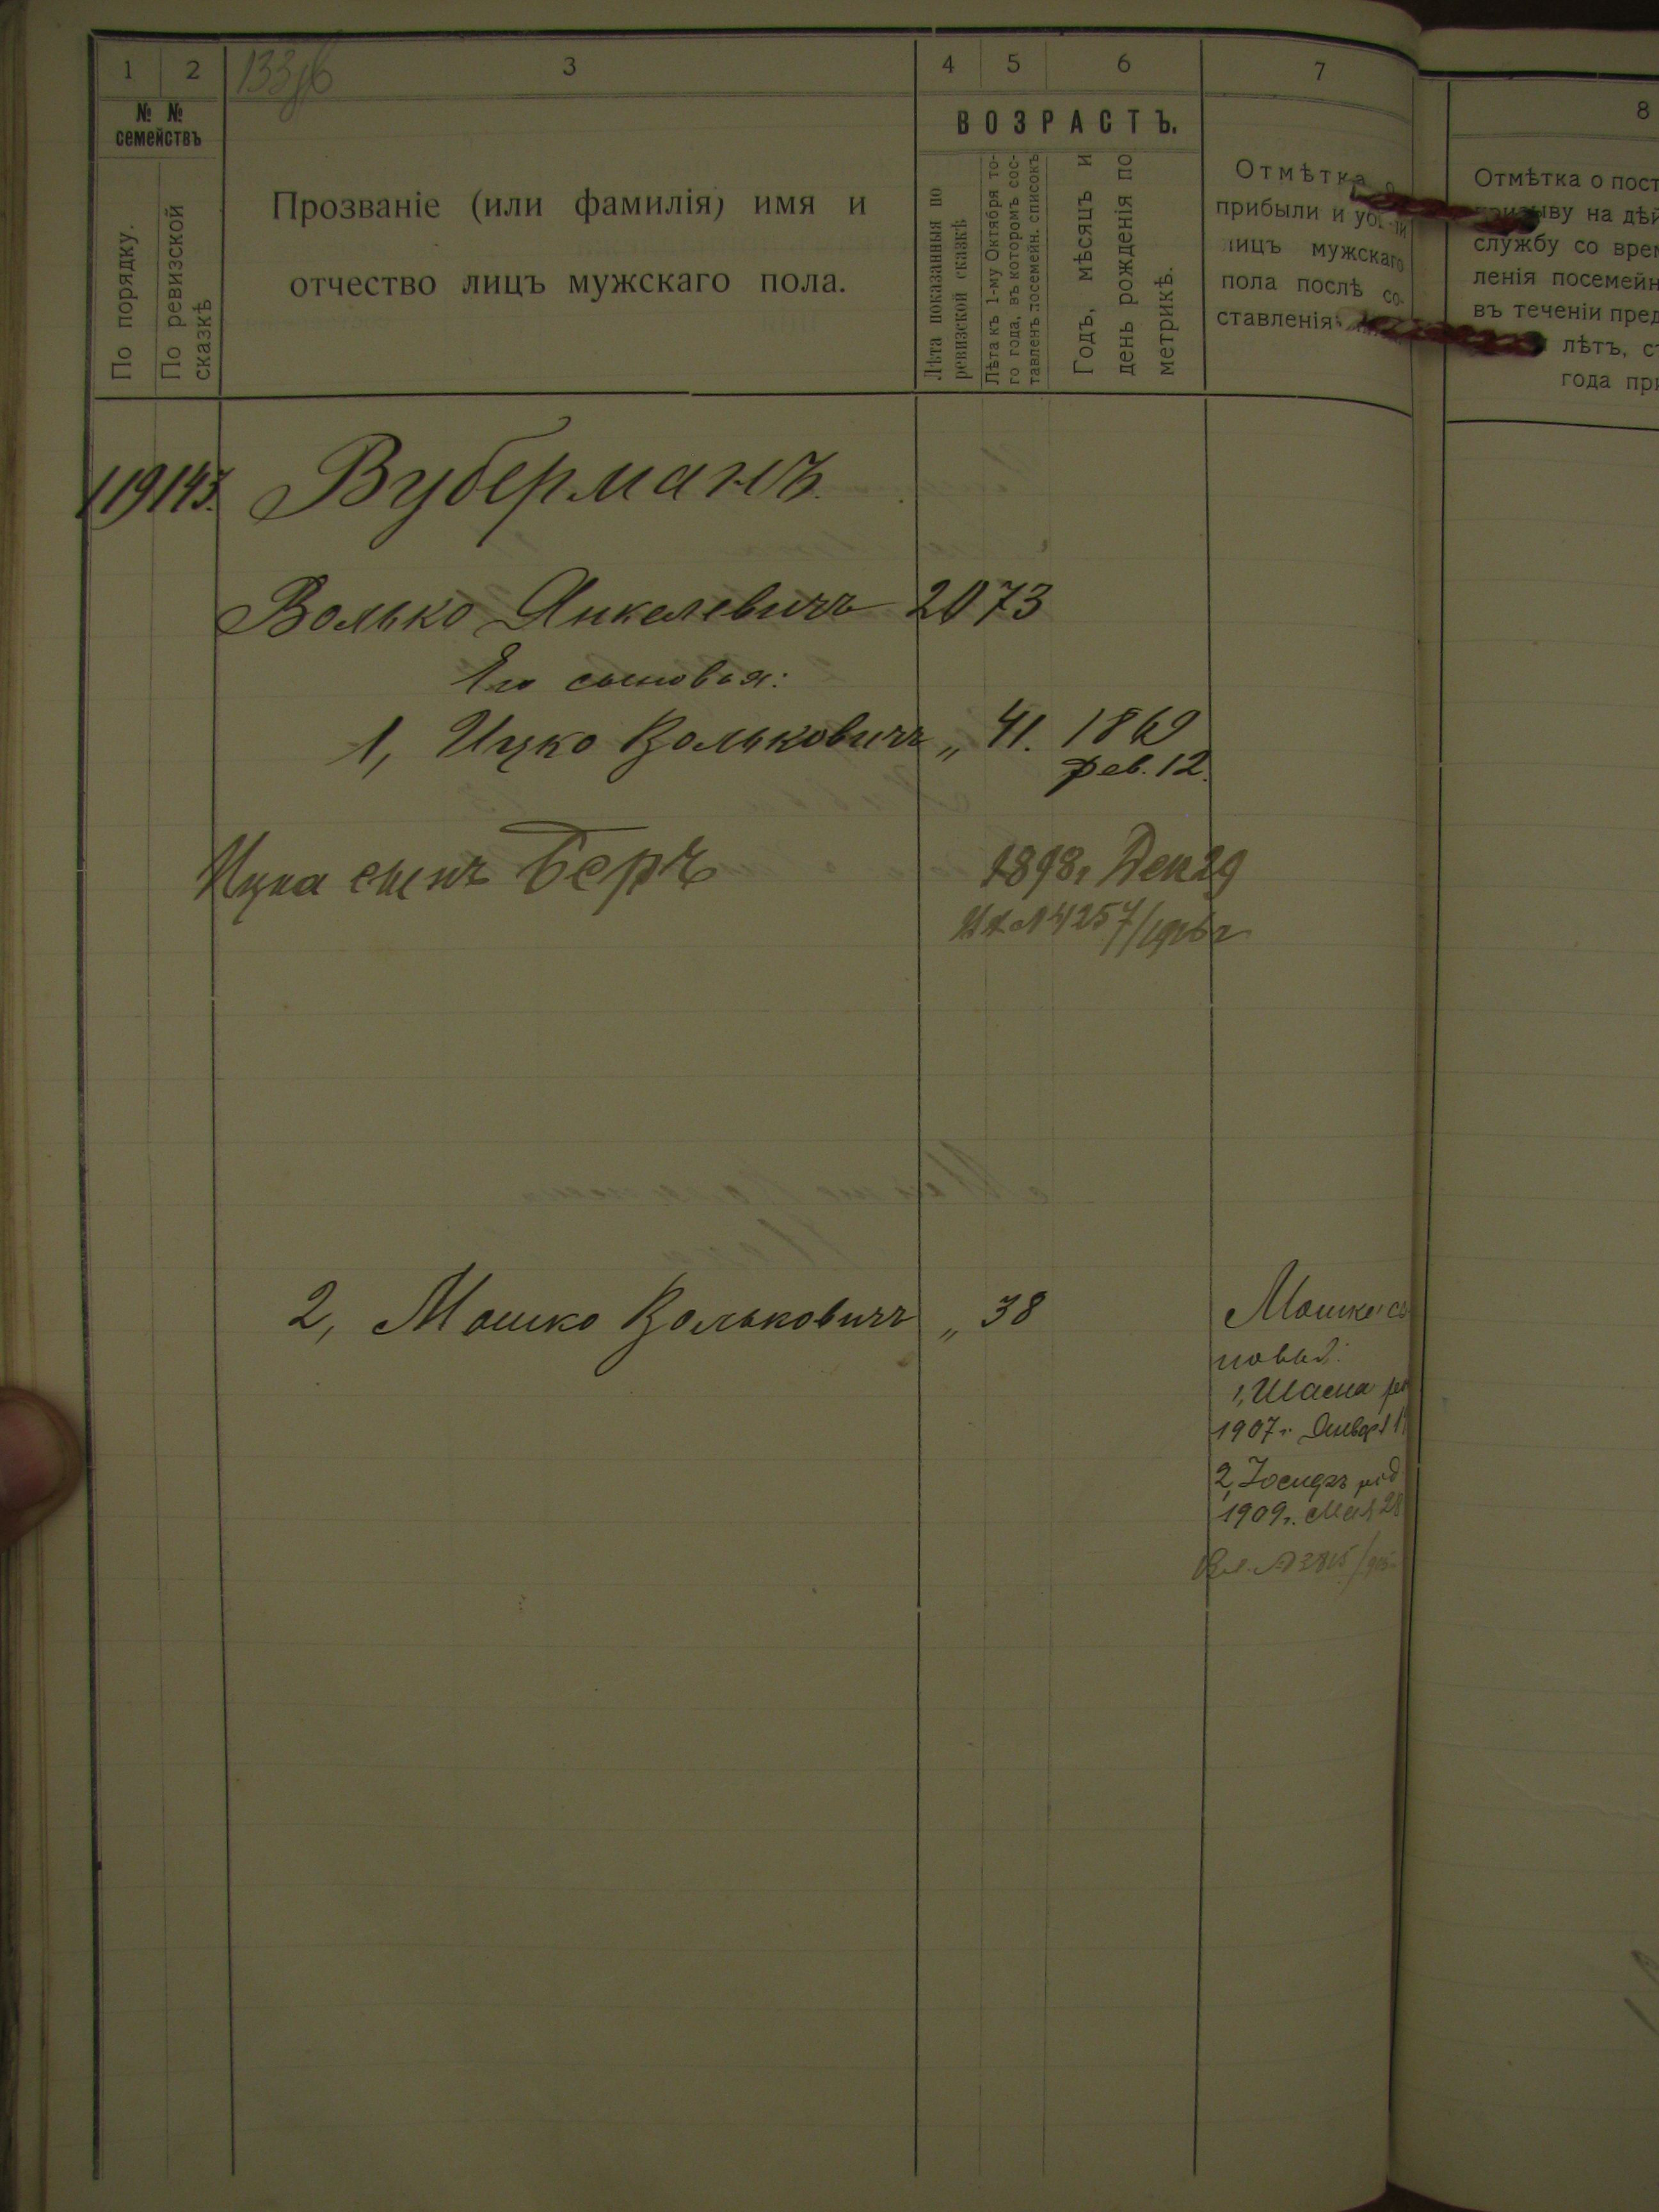 1 2 3 4 5 6 7 8
№ №
семействъ
По порядку.
По ревизской
сказкѣ
Прозваніе (или фамилія) имя и
отчество лицъ мужскаго пола.
ВОЗРАСТЪ.
Лѣта показанныя по
ревизской сказкѣ
Лѣта къ 1-му Октября то-
го года, въ которомъ сос-
тавленъ посемейн. списокъ
Годъ, мѣсяцъ и
день рожденія по
метрикѣ.
Отмѣтка о
прибыли и убыли
лицъ мужскаго
пола послѣ со-
ставленія
Отмѣтка о пост
призыву на дѣй
службу со врем
ленія посемейн
въ теченіи пред
лѣтъ, с
года при
119 143. Вуберманъ.
Волько Янкелевичъ 20 73
Его сыновья:
1, Ицко Вольковичъ „ 41. 1869
фев. 12.
Ицка сынъ Беръ 1898 г. Дек 29
Вх № 4257/
2, Мошко Вольковичъ „ 38
Мошки сы
новья:
1, Шаема ро
1907 г. Января
2, Іосифъ род
1909 г. Мая 28
Вх. № 3815/